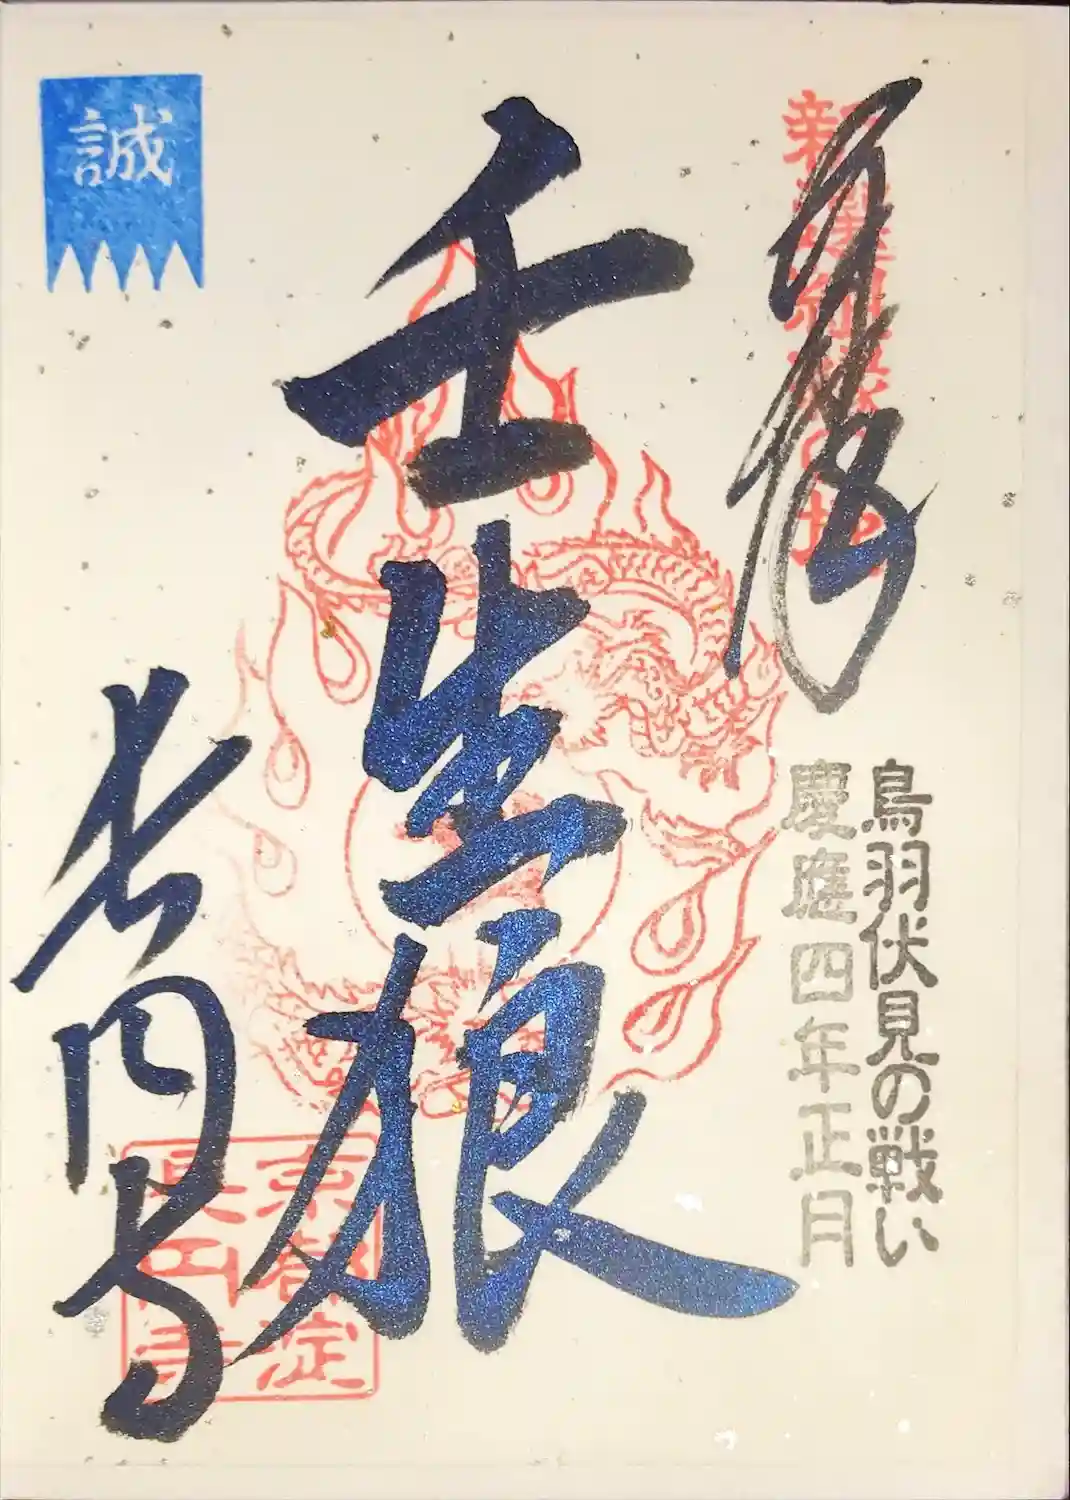 奉拝
鳥羽伏見の戦い
慶應四年正月
壬生狼
長円寺
京都淀
長円寺
誠